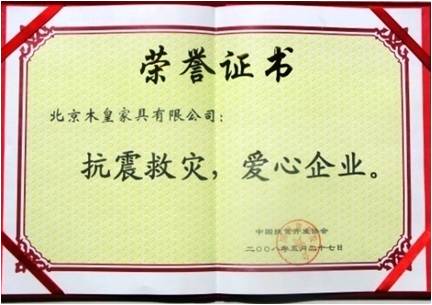 荣誉证书
北京木皇家具有限公司：
抗震救灾，爱心企业。
中国扶贫开发协会
二〇〇八年五月二十七日